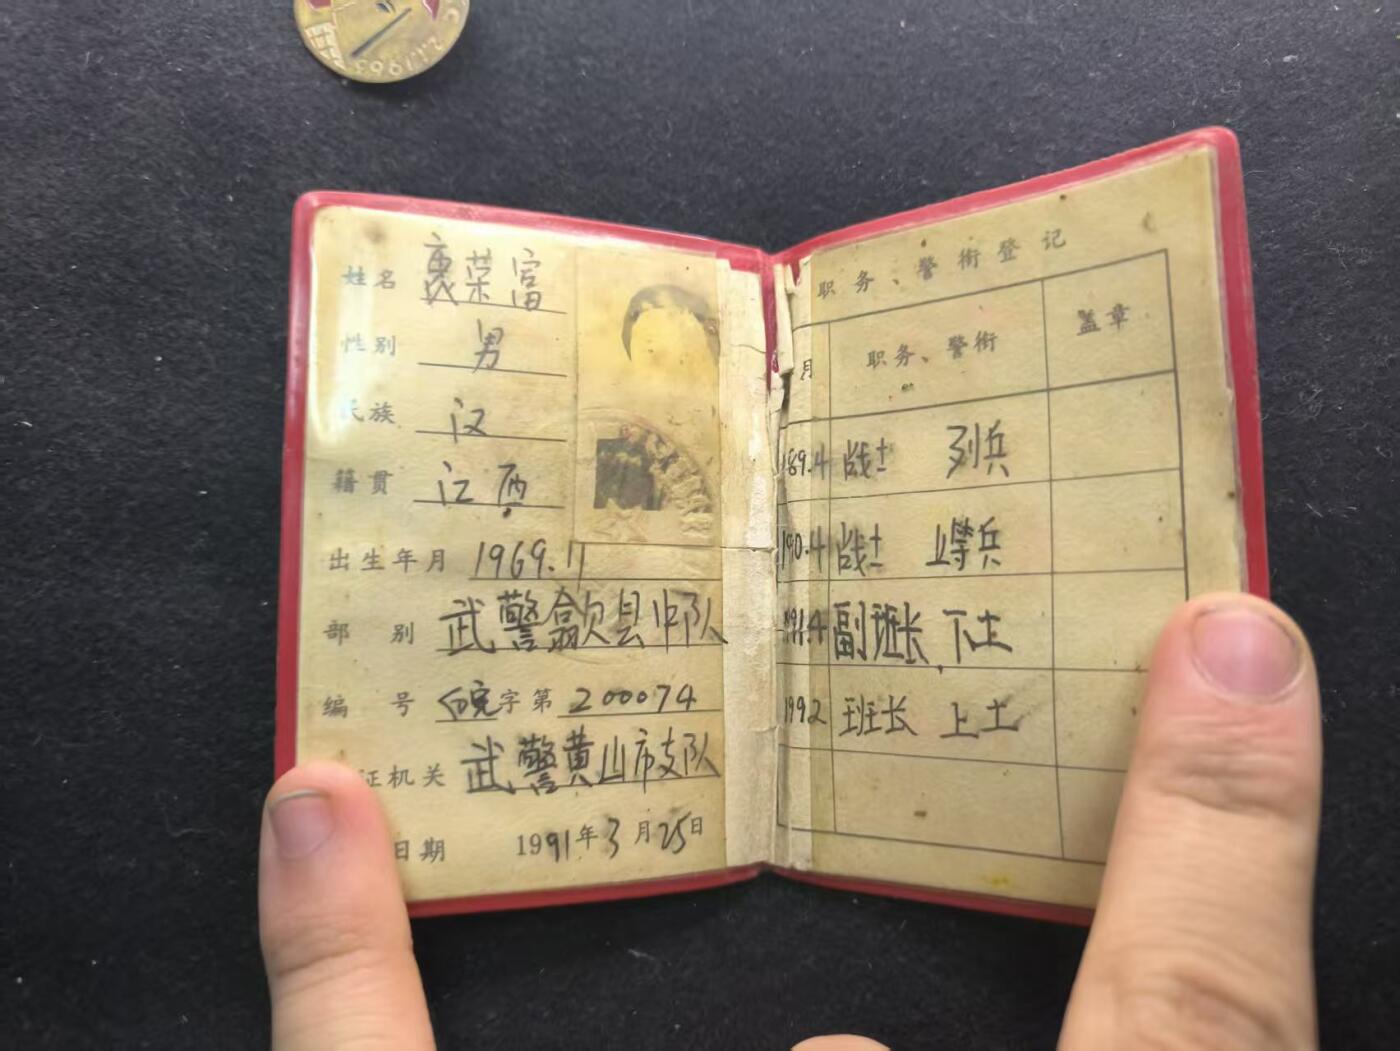 姓名 裘荣富
性别 男
民族 汉
籍贯 江西
出生年月 1969.11
部别 武警歙县中队
编号 皖字第 200074
证机关 武警黄山市支队
日期 1991年3月25日
职务、警衔登记
月 职务、警衔 盖章
89.4 战士 列兵
90.4 战士 上等兵
91.4 副班长 下士
1992 班长 上士